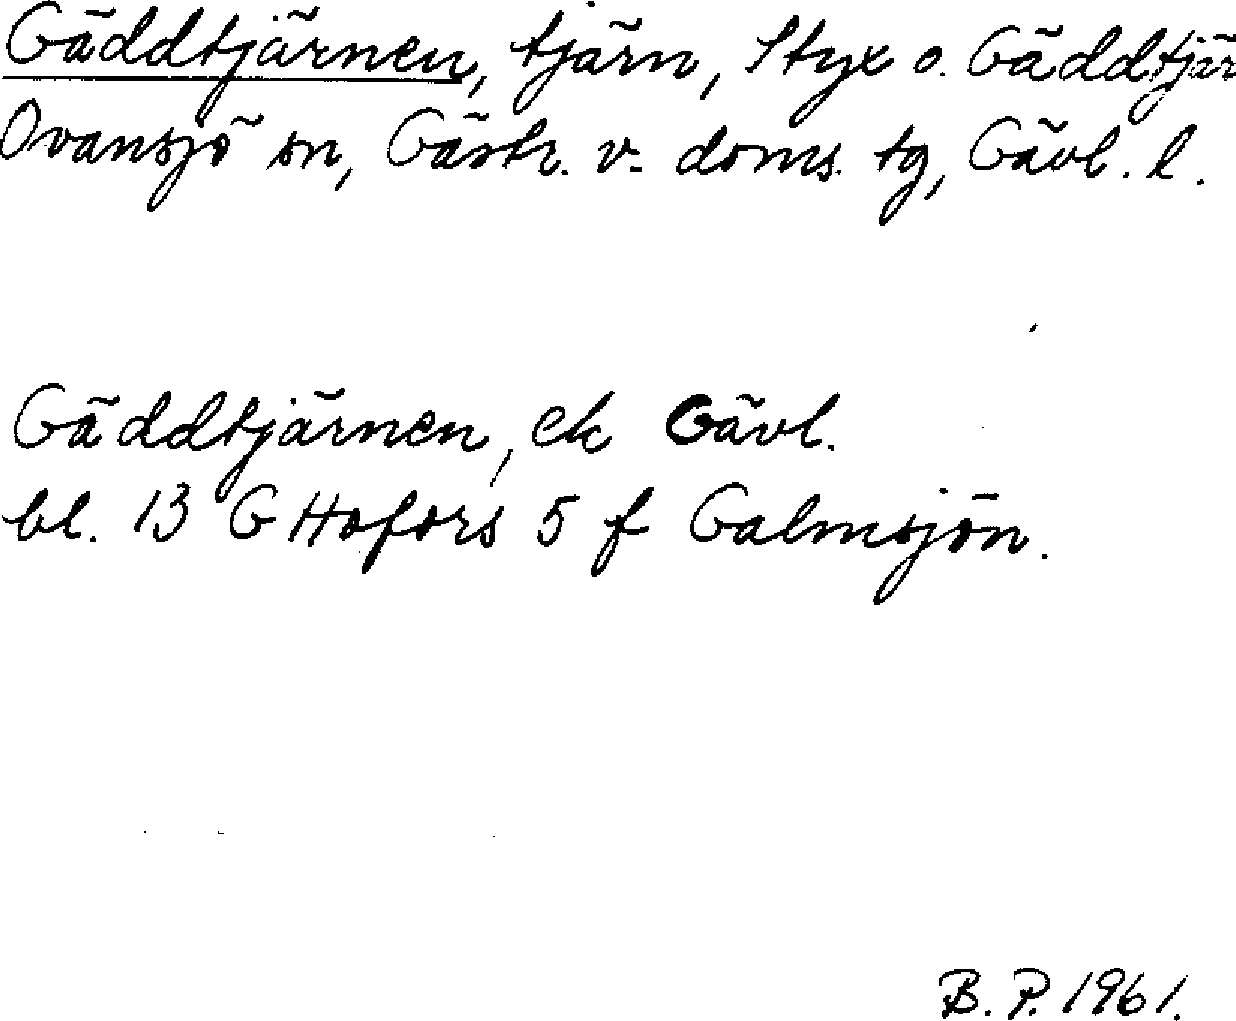 Gäddtjärnen, tjärn, Styx o. Gäddtjär
Ovansjö sn, Gästr. v. doms. tg, Gävl. l.
Gäddtjärnen, ek Gävl.
bl. 13 G Hofors 5 f Galmsjön.
B. P. 1961.